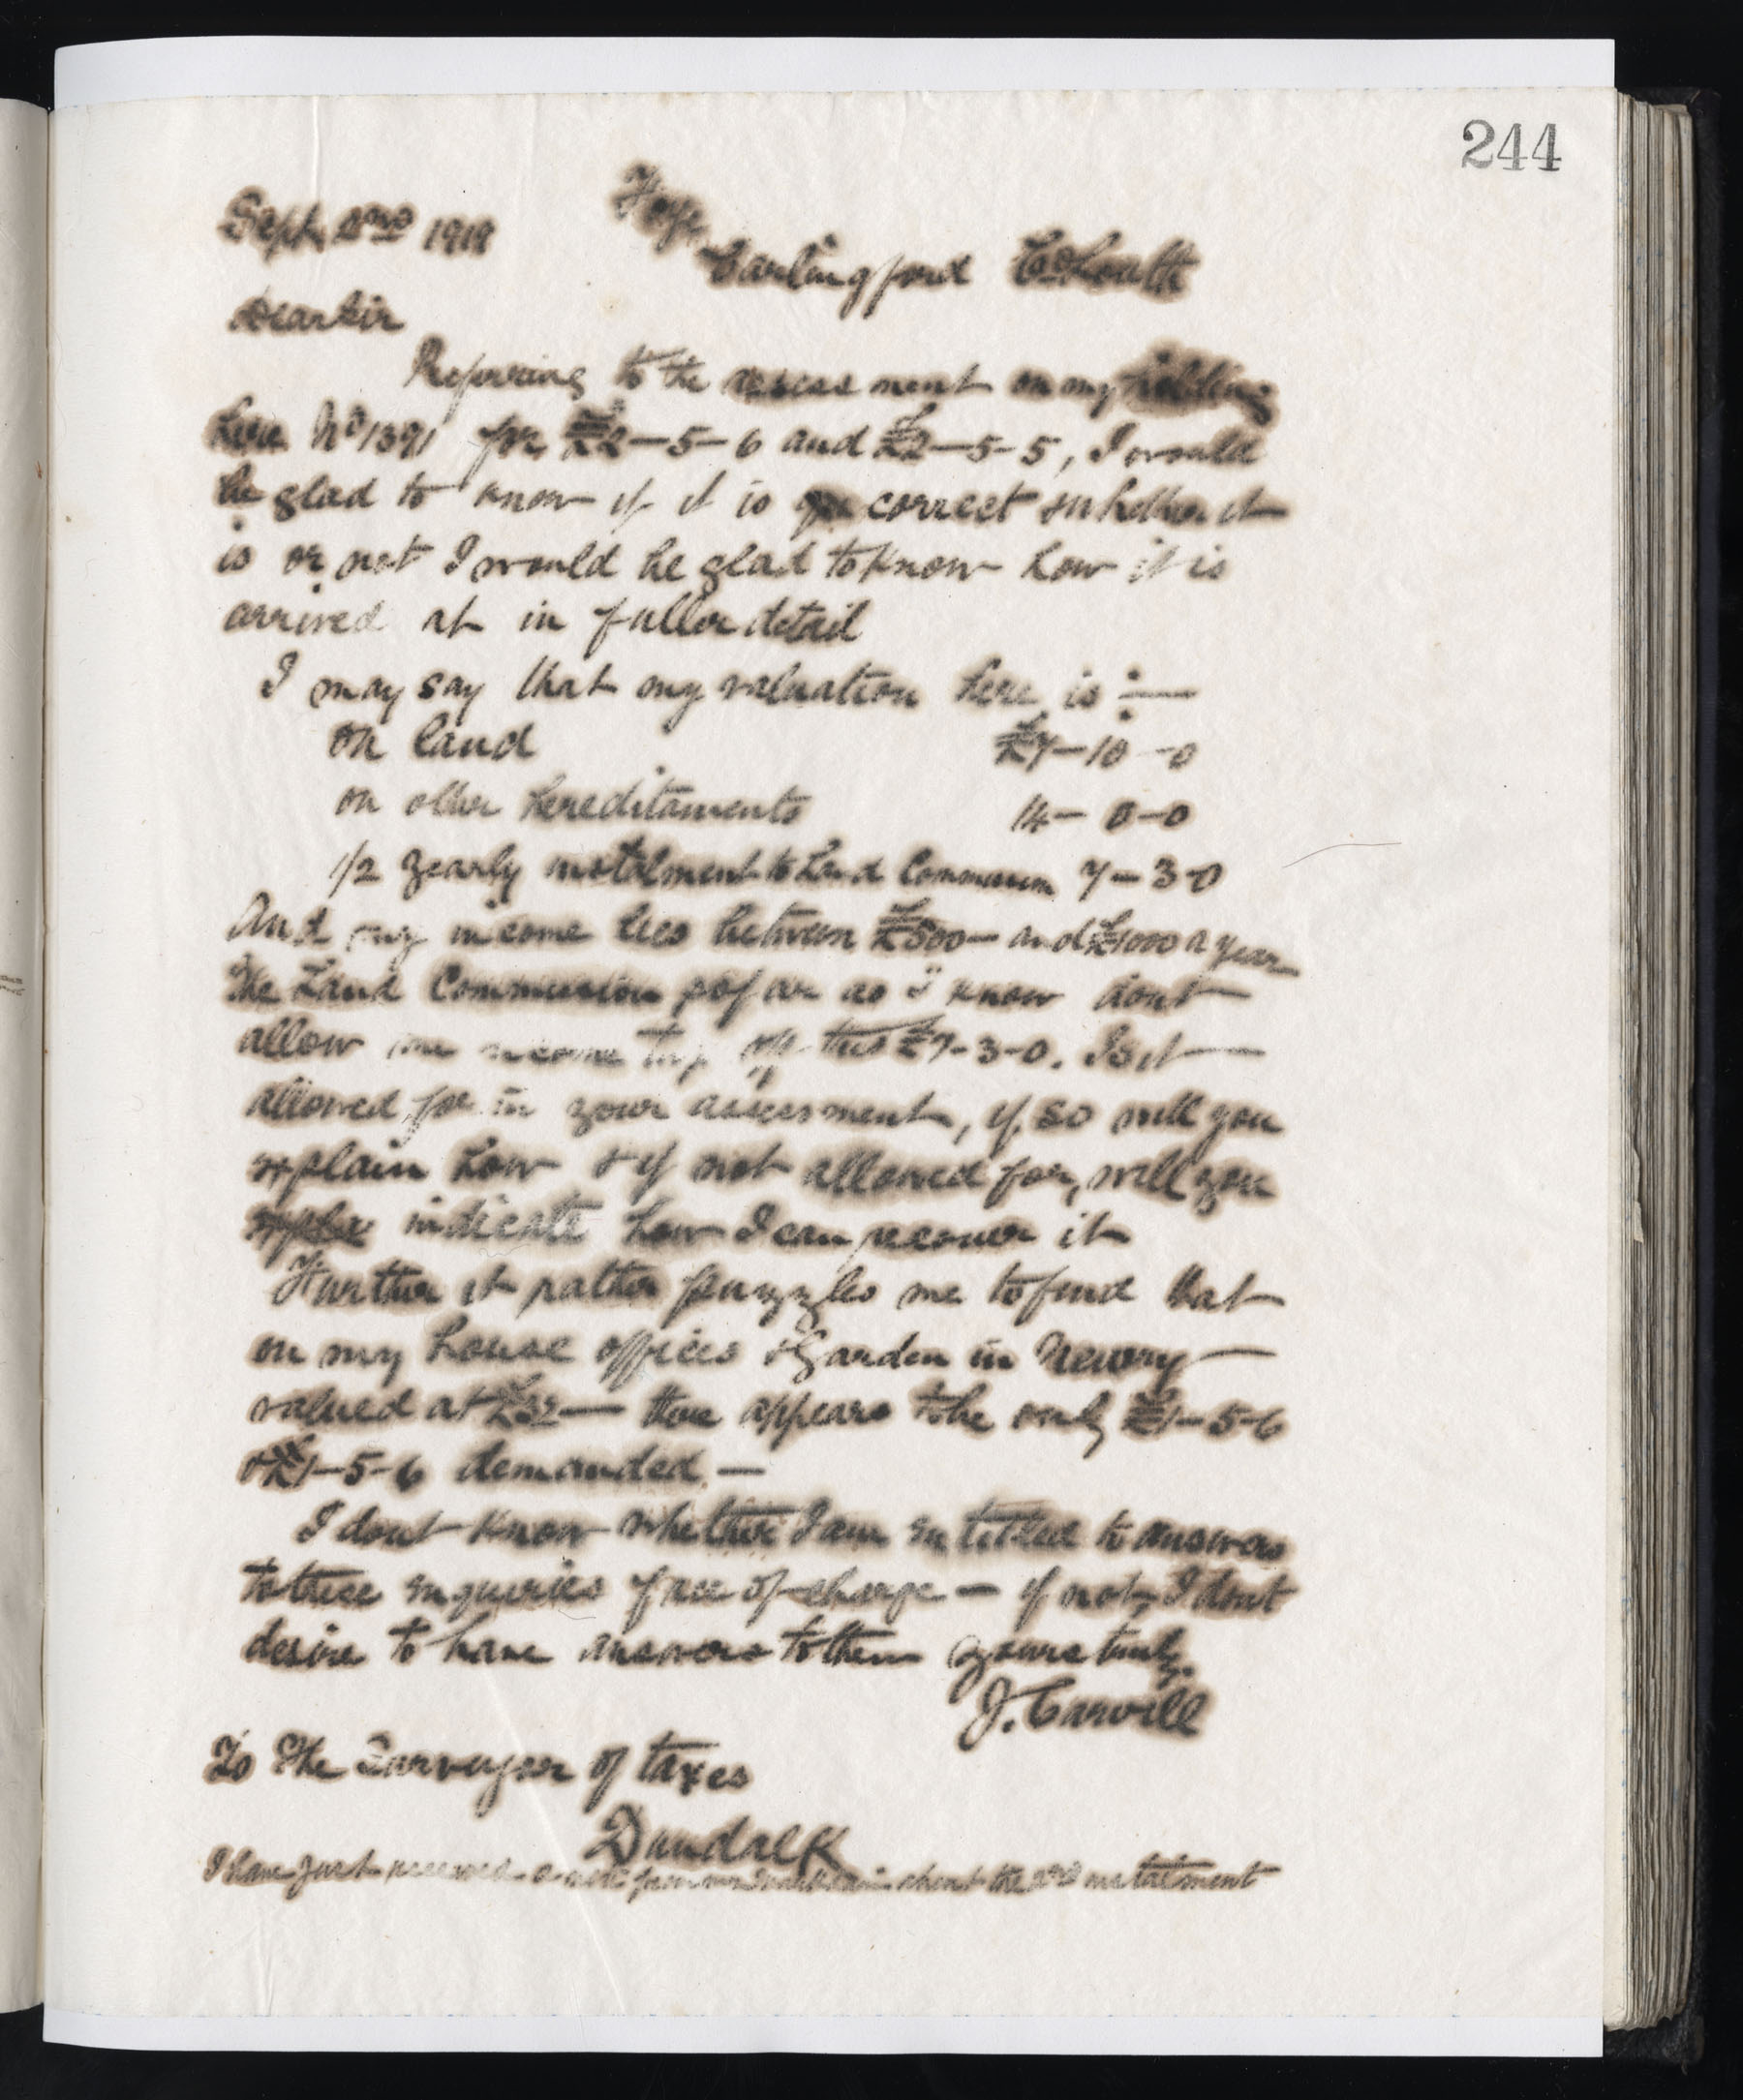 244
Sept 2nd 1918
Carlingford Co Louth
Dear Sir
Referring to the assessment on my holding
here No 1391 for £2-5-6 and £2-5-5, I would
be glad to know if it is correct whether it
is or not I would be glad to know how it is
arrived at in fuller detail
I may say that my valuation here is :—
on land £7-10-0
on other hereditaments 14-0-0
1/2 yearly instalment to Land Commission 7-3-0
And my income lies between £500- and £1000 a year
The Land Commission so far as I know dont
allow me income tax off this £7-3-0. Is it
allowed for in your assessment, if so will you
explain how & if not allowed for, will you
indicate how I can recover it
Further it rather puzzles me to find that
on my house offices & Garden in Newry
valued at £32- there appears to be only £1-5-6
& £1-5-6 demanded —
I dont know whether I am entitled to answers
to these enquiries free of charge — if not, I dont
desire to have answers to them yours truly
J. Carvill
To The Surveyor of taxes
Dundalk
I have just received a note from about the 2nd instalment